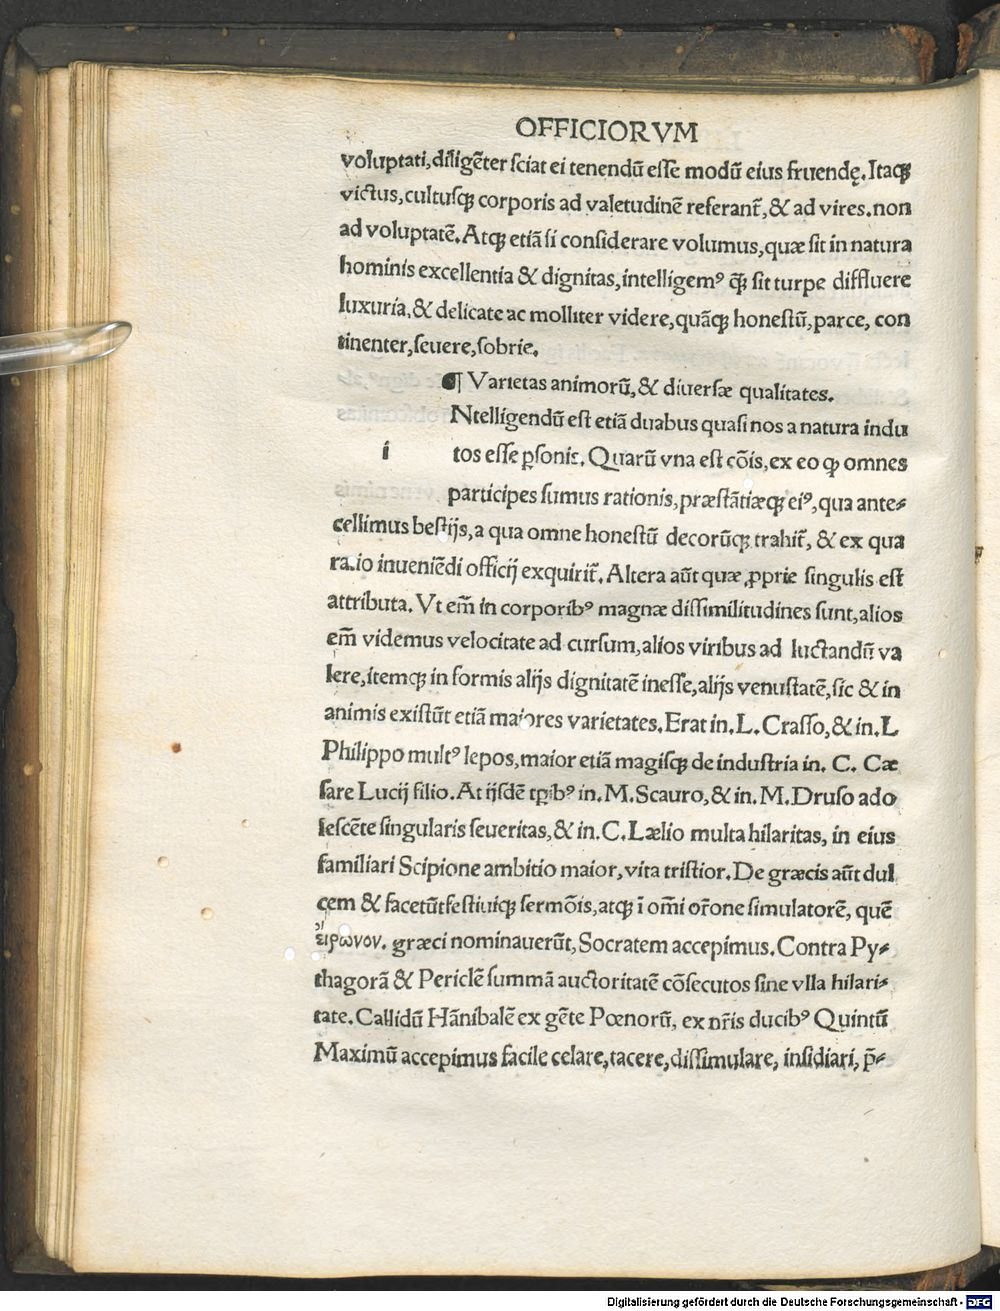 OFFICIORVM
voluptati, diligẽter sciat ei tenendũ esse modũ eius fruendę. Itaqꝫ
victus, cultusqꝫ corporis ad valetudinẽ referant᷑, & ad vires. non
ad voluptatẽ. Atqꝫ etiã si considerare volumus, quæ sit in natura
hominis excellentia & dignitas, intelligemꝰ q̃ꝫ sit turpe diffluere
luxuria, & delicate ac molliter videre, quãqꝫ honestũ, parce, con
tinenter, seuere, sobrie.
¶ Varietas animorũ, & diuersæ qualitates.
Ntelligendũ est etiã duabus quasi nos a natura indu
i tos esse ꝑsonis. Quarũ vna est cõis, ex eo ꝙ omnes
participes sumus rationis, præstãtiæqꝫ eiꝰ, qua ante⸗
cellimus bestijs, a qua omne honestũ decorũqꝫ trahit᷑, & ex qua
ratio inueniẽdi officij exquirit᷑. Altera aũt quæ ꝓprie singulis est
attributa. Vt em̃ in corporibꝰ magnæ dissimilitudines sunt, alios
em̃ videmus velocitate ad cursum, alios viribus ad luctandũ va
lere, itemqꝫ in formis alijs dignitatẽ inesse, alijs venustatẽ, sic & in
animis existũt etiã maiores varietates. Erat in. L. Crasso, & in. L
Philippo multꝰ lepos, maior etiã magisqꝫ de industria in. C. Cæ
sare Lucij filio. At ijsdẽ tꝑibꝰ in. M. Scauro, & in. M. Druso ado
lescẽte singularis seueritas, & in. C. Lælio multa hilaritas, in eius
familiari Scipione ambitio maior, vita tristior. De græcis aũt dul
cem & facetũ festiuiqꝫ sermõis, atqꝫ ĩ om̃i or̃one simulatorẽ, quẽ
εἴρωνον. græci nominauerũt, Socratem accepimus. Contra Py⸗
thagorã & Periclẽ summã auctoritatẽ cõsecutos sine vlla hilari⸗
tate. Callidũ Hãnibalẽ ex gẽte Pœnorũ, ex nr̃is ducibꝰ Quintũ
Maximũ accepimus facile celare, tacere, dissimulare, insidiari, p̃⸗
Digitalisierung gefördert durch die Deutsche Forschungsgemeinschaft - DFG